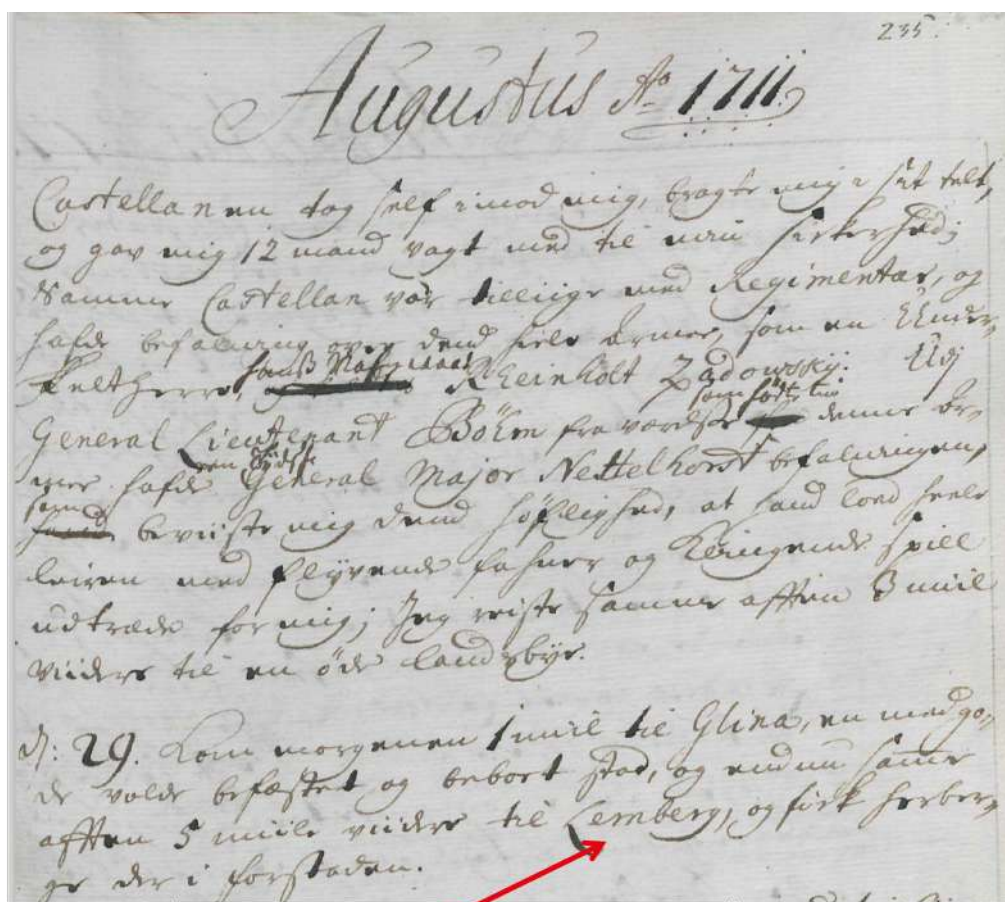 235.
Augustus Ao 1711.
Castellanen tog self imod mig, bragte mig i sit telt,
og gav mig 12 mand vagt med til min sikkerhed;
Samme Castellan var tilliige med Regimentar, og
hafde befalning over dend heele Armee, som en Under-
Feltherre, hans Nafn waar Rheinholt Zadowskij. Udj
som førte tin
General Lieutenant Böhm fraværelse denne Ar-
en Tydsk
mee hafde General Major Nettelhorst befalningen,
som
hand beviiste mig dend høflighed, at hand lod heele
leiren med flyvende fahner og klingende spill
udtræde for mig; Jeg reiste samme afften 3 miil
viidere til en øde landsbye.
d: 29. kom morgenen 1 miil til Glina, en med go-
de volde befæstet og beboet stad, og endnu samme
afften 5 miile viidere til Lemberg, og fik herber-
ge der i forstaden.